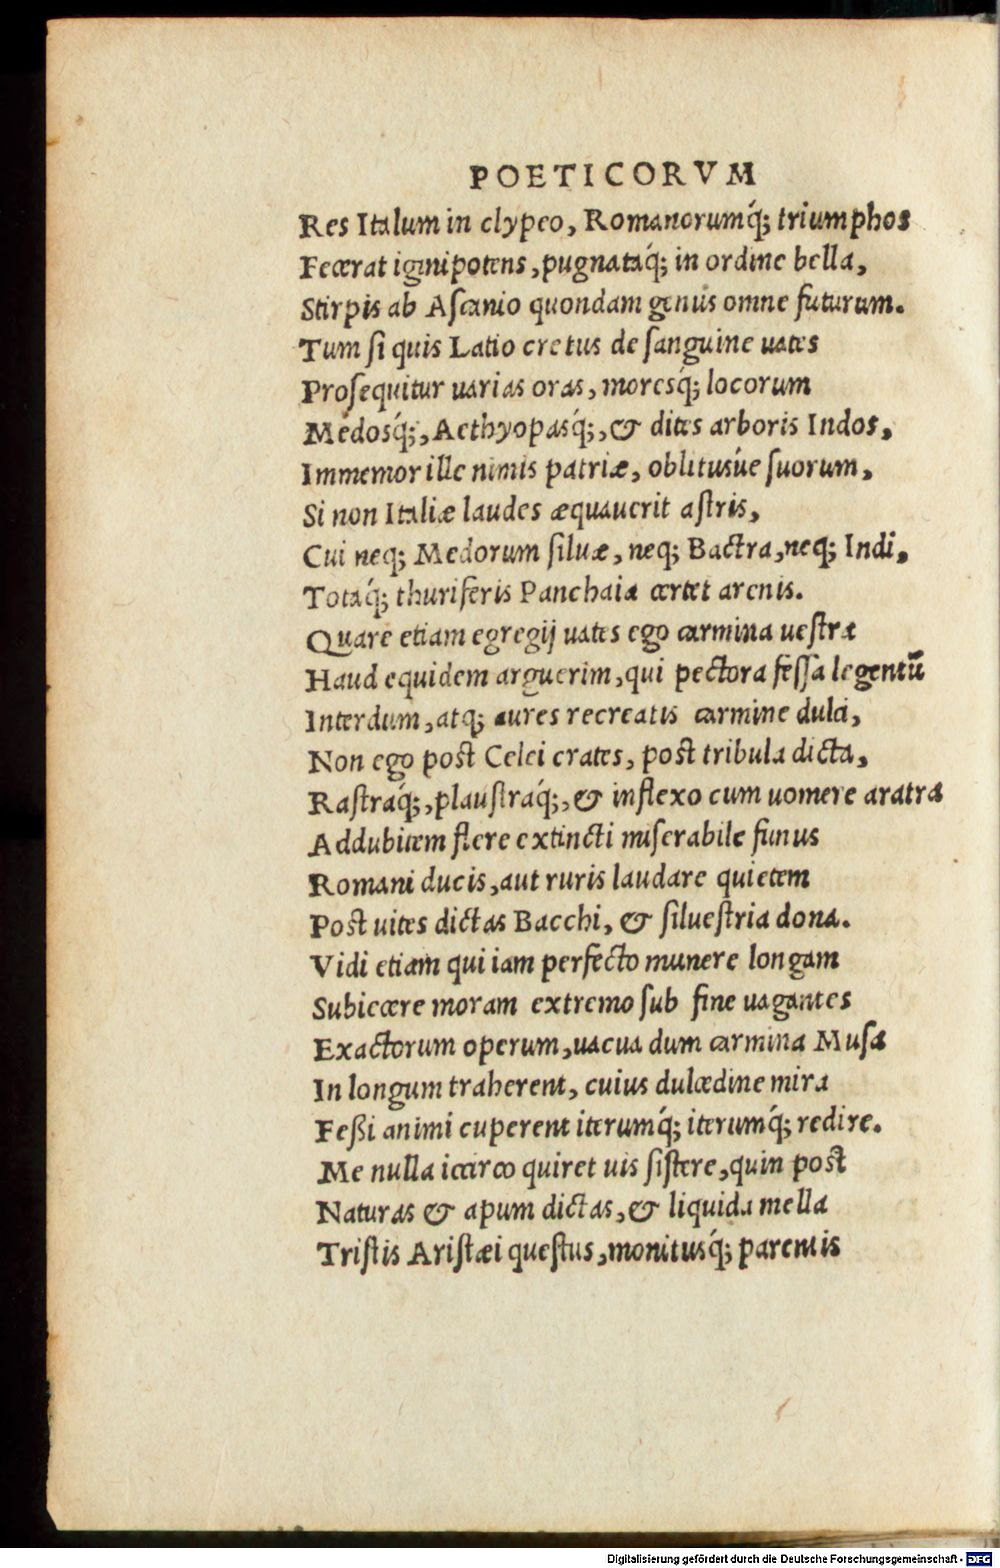 POETICORVM
Res Italum in clypeo, Romanorumq́; triumphos
Fecerat ignipotens, pugnataq́; in ordine bella,
Stirpis ab Ascanio quondam genus omne futurum.
Tum si quis Latio cretus de sanguine uates
Prosequitur uarias oras, moresq́; locorum
Medosq́;, Aethyopasq́;, & dites arboris Indos,
Immemor ille nimis patriæ, oblitusúe suorum,
Si non Italiæ laudes æquauerit astris,
Cui neq; Medorum siluæ, neq; Bactra, neq; Indi,
Totaq́; thuriferis Panchaia certet arenis.
Quare etiam egregij uates ego carmina uestra
Haud equidem arguerim, qui pectora fessa legentū
Interdum, atq; aures recreatis carmine dulci,
Non ego post Celei crates, post tribula dicta,
Rastraq́;, plaustraq́;, & inflexo cum uomere aratra
Addubitem flere extincti miserabile funus
Romani ducis, aut ruris laudare quietem
Post uites dictas Bacchi, & siluestria dona.
Vidi etiam qui iam perfecto munere longam
Subiecere moram extremo sub fine uagantes
Exactorum operum, uacua dum carmina Musa
In longum traherent, cuius dulcedine mira
Feßi animi cuperent iterumq́; iterumq́; redire.
Me nulla iccirco quiret uis sistere, quin post
Naturas & apum dictas, & liquida mella
Tristis Aristæi questus, monitusq́; parentis
Digitalisierung gefördert durch die Deutsche Forschungsgemeinschaft - DFG